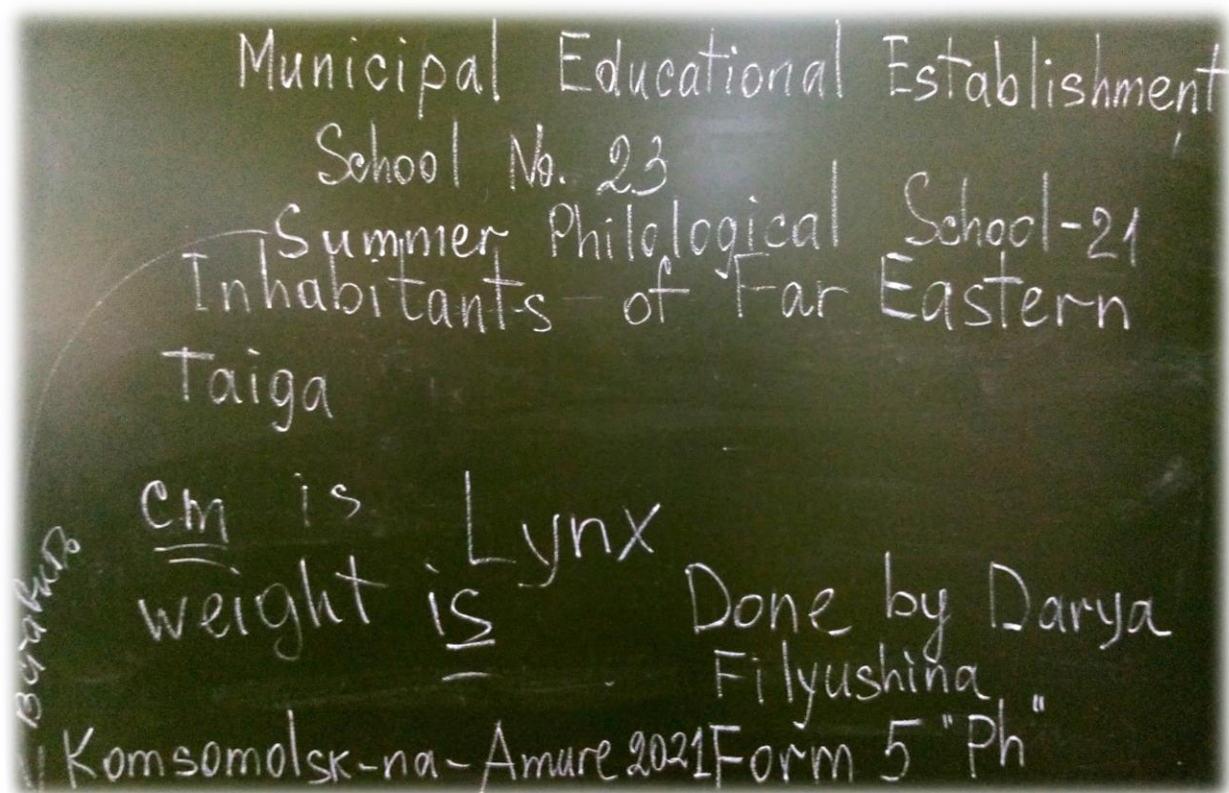 Municipal Educational Establishment
School No. 23
Summer Philological School-21
Inhabitants of Far Eastern
Taiga
cm is
Lynx
weight is
Done by Darya
Filyushina
Form 5 "Ph"
Komsomolsk-na-Amure 2021
Вставить